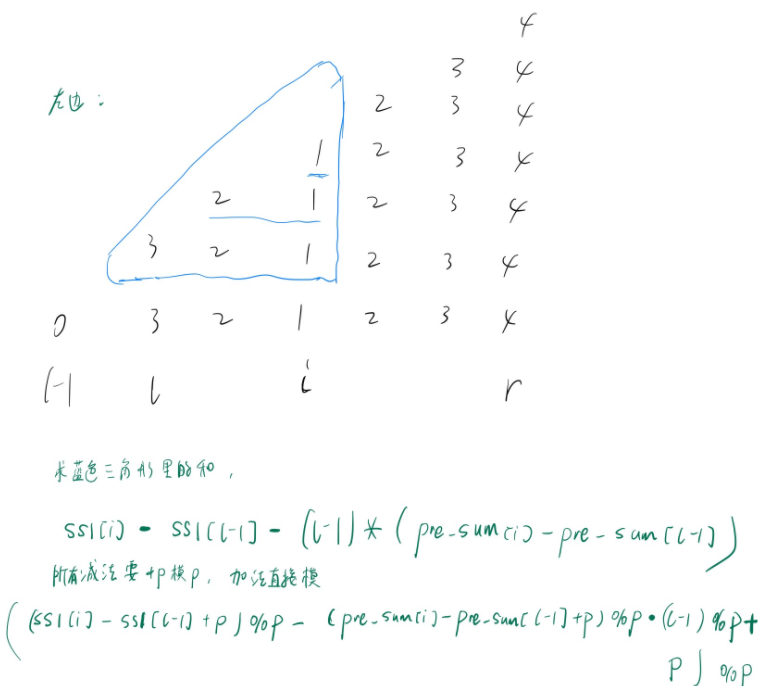 4
3 4
左边： 2 3 4
1 2 3 4
2 1 2 3 4
3 2 1 2 3 4
0 3 2 1 2 3 4
l-1 l i r
求蓝色三角形里的和，
ss1[i] - ss1[l-1] - (l-1) * (pre_sum[i] - pre_sum[l-1])
所有减法要+p模p，加法直接模
((ss1[i] - ss1[l-1] + p) % p - (pre_sum[i] - pre_sum[l-1] + p) % p · (l-1) % p +
p) % p